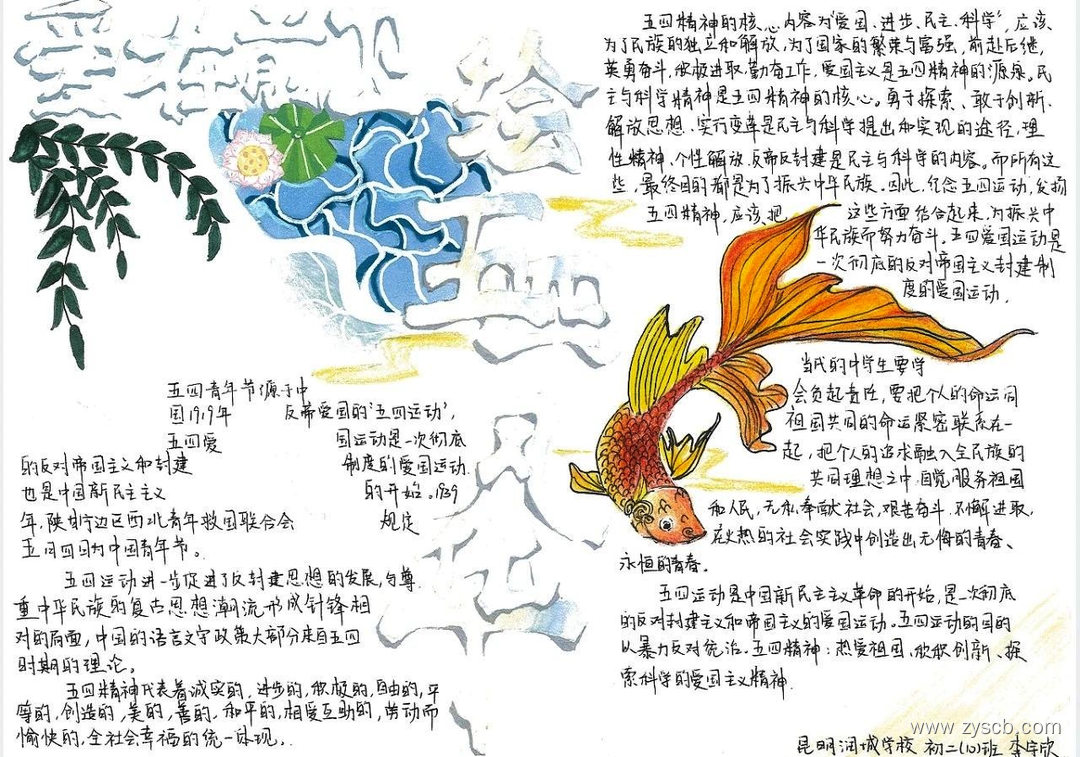 绘五四
风华
五四精神的核心内容为"爱国、进步、民主、科学",应该
为了民族的独立和解放,为了国家的繁荣与富强,前赴后继,
英勇奋斗,积极进取,勤奋工作,爱国主义是五四精神的源泉。民
主与科学精神是五四精神的核心。勇于探索、敢于创新、
解放思想、实行变革是民主与科学提出和实现的途径,理
性精神、个性解放、反帝反封建是民主与科学的内容。而所有这
些,最终目的都是为了振兴中华民族。因此,纪念五四运动,发扬
五四精神,应该把 这些方面结合起来,为振兴中
华民族而努力奋斗。五四爱国运动是
一次彻底的反对帝国主义封建制
度的爱国运动,
五四青年节源于中
国1919年 反帝爱国的"五四运动",
五四爱 国运动是一次彻底
的反对帝国主义和封建 制度的爱国运动.
也是中国新民主主义 的开始。1939
年,陕甘宁边区西北青年救国联合会 规定
五月四日为中国青年节。
五四运动进一步促进了反封建思想的发展,与尊
重中华民族的复古思想潮流形成针锋相
对的局面,中国的语言文字政策大部分来自五四
时期的理论。
五四精神代表着诚实的,进步的,积极的,自由的,平
等的,创造的,美的,善的,和平的,相爱互助的,劳动而
愉快的,全社会幸福的统一体现。
当代的中学生要学
会负起责任,要把个人的命运同
祖国共同的命运紧密联系在一
起,把个人的追求融入全民族的
共同理想之中,自觉服务祖国
和人民,无私奉献社会,艰苦奋斗,不懈进取,
在火热的社会实践中创造出无悔的青春、
永恒的青春。
五四运动是中国新民主主义革命的开始,是一次彻底
的反对封建主义和帝国主义的爱国运动。五四运动的目的
以暴力反对统治。五四精神:热爱祖国、积极创新、探
索科学的爱国主义精神.
www.zyscb.com
昆明润城学校 初二(10)班 李宇欣